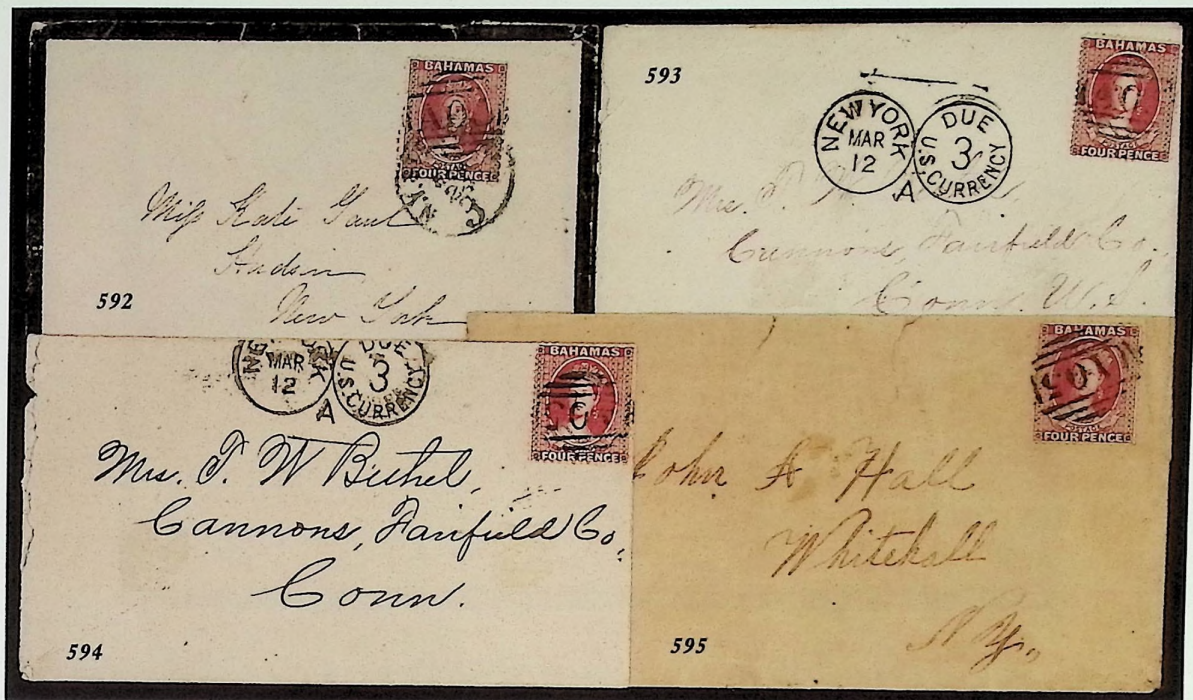 BAHAMAS
POSTAGE
FOUR PENCE
N.Y.
Miss Kate Gaul
Hudson
New York
592
593
NEW YORK
MAR
12
A
DUE
3
U.S. CURRENCY
BAHAMAS
POSTAGE
FOUR PENCE
Mrs. T. W
Cannons, Fairfield Co.
Conn. U.S.
NEW YORK
MAR
12
A
DUE
3
U.S. CURRENCY
BAHAMAS
FOUR PENCE
Mrs. T. W Bethel,
Cannons, Fairfield Co,
Conn.
594
BAHAMAS
POSTAGE
FOUR PENCE
John A Hall
Whitehall
N Y.,
595